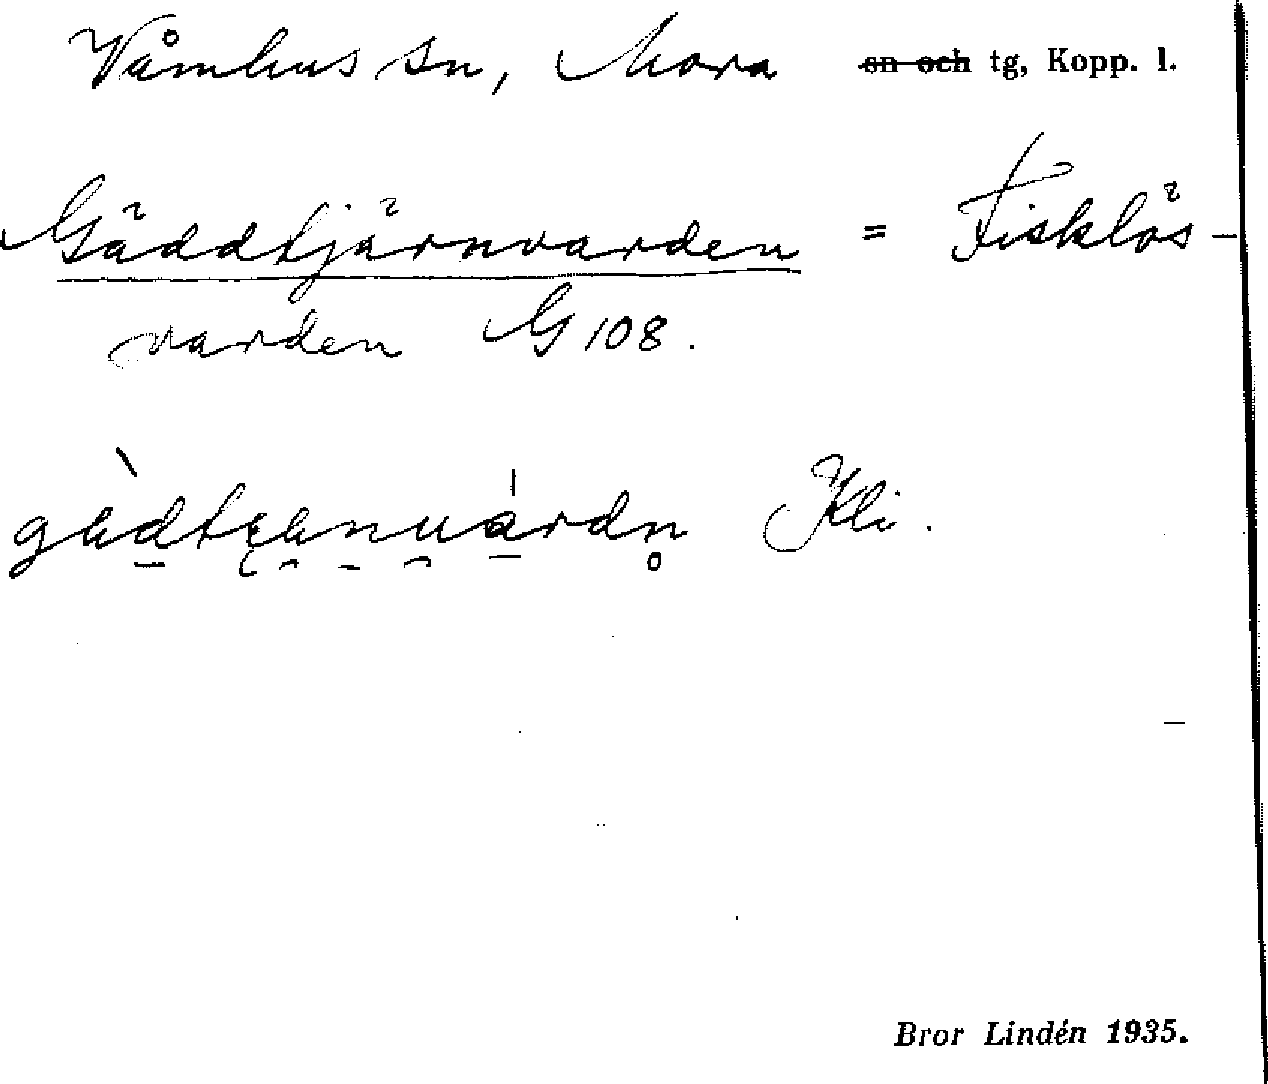 Våmhus sn, Mora sn och tg, Kopp. l.
Gäddtjärnvarden = Fisklös-
varden G 108.
Kli.
Bror Lindén 1935.